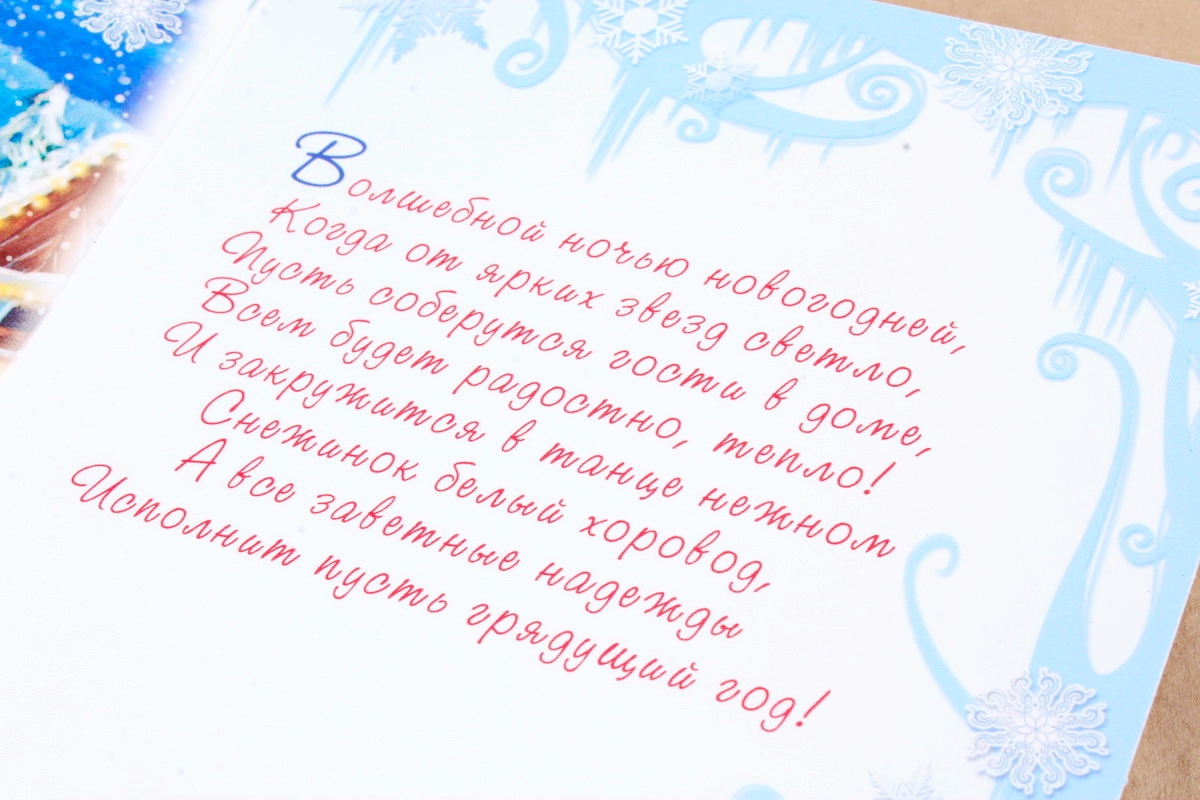 Волшебной ночью новогодней,
Когда от ярких звезд светло,
Пусть соберутся гости в доме,
Всем будет радостно, тепло!
И закружится в танце нежном
Снежинок белый хоровод,
А все заветные надежды
Исполнит пусть грядущий год!